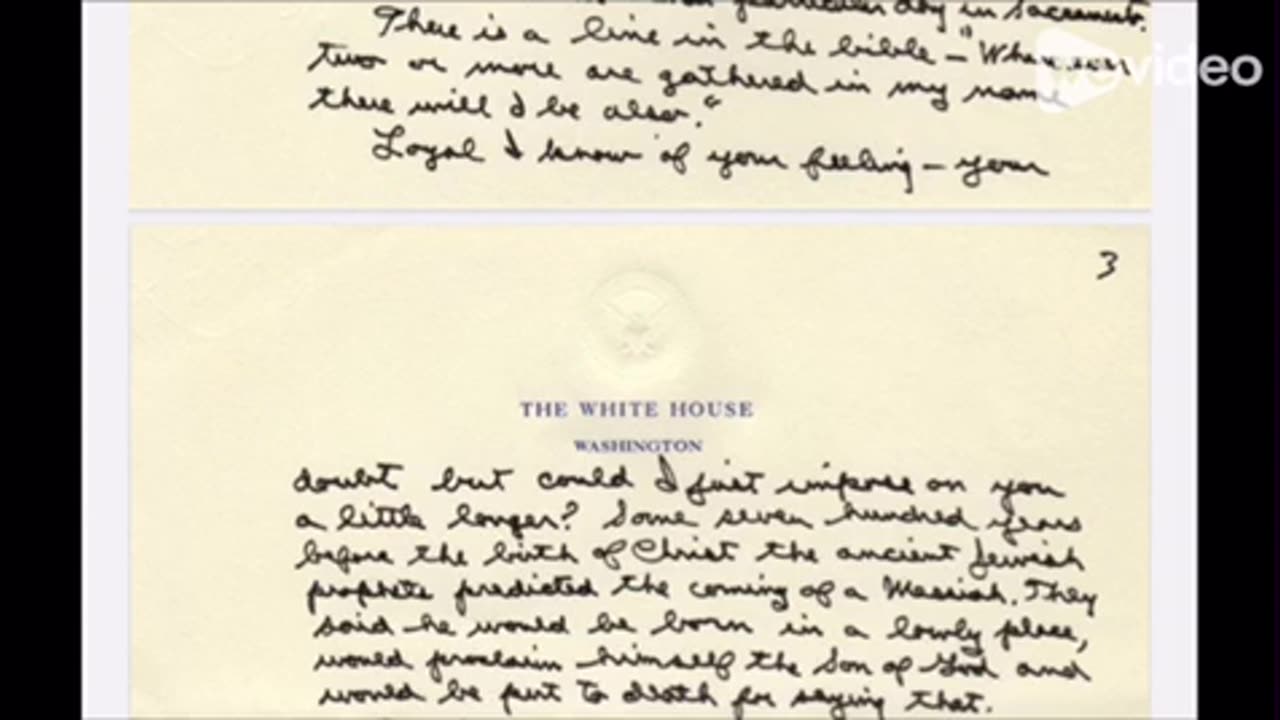 particular day in Sacramento.
There is a line in the bible — "Where ever
two or more are gathered in my name
there will I be also."
Loyal I know of your feeling — your
3
THE WHITE HOUSE
WASHINGTON
doubt but could I just impose on you
a little longer? Some seven hundred years
before the birth of Christ the ancient Jewish
prophets predicted the coming of a Messiah. They
said he would be born in a lowly place,
would proclaim himself the Son of God and
would be put to death for saying that.
video